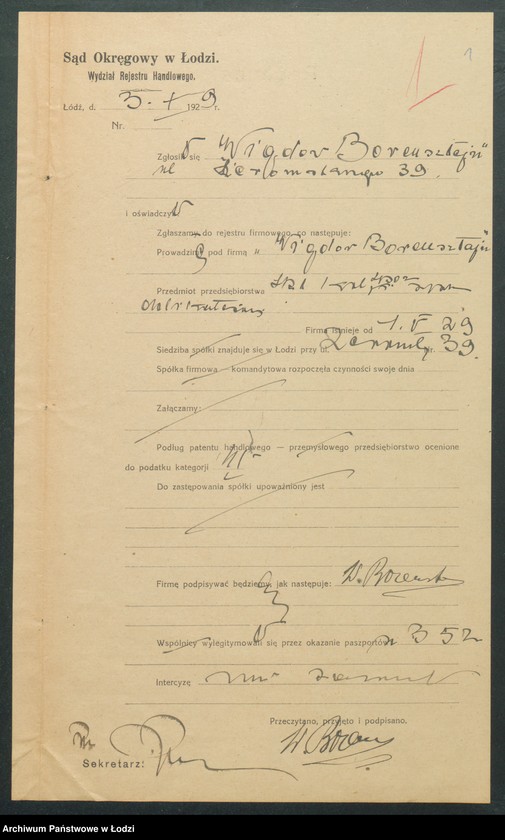 1
1
Sąd Okręgowy w Łodzi.
Wydział Rejestru Handlowego.
Łódź, d. 3. X 1929 r.
Nr.
Zgłosił się "Wigdor Borensztajn"
ul Żeromskiego 39.
i oświadczył
Zgłaszamy do rejestru firmowego, co następuje:
Prowadzimy pod firmą „Wigdor Borensztajn"
Przedmiot przedsiębiorstwa
Firma istnieje od 1. V 29
Siedziba spółki znajduje się w Łodzi przy ul. nr. 39.
Spółka firmowa — komandytowa rozpoczęła czynności swoje dnia
Załączamy:
Podług patentu handlowego — przemysłowego przedsiębiorstwo ocenione
do podatku kategorji
Do zastępowania spółki upoważniony jest
Firmę podpisywać będziemy, jak następuje: W. Borensz
Wspólnicy wylegitymowali się przez okazanie paszportów 352
Intercyzę nie
Przeczytano, przyjęto i podpisano.
W. Boren
Sekretarz:
Archiwum Państwowe w Łodzi